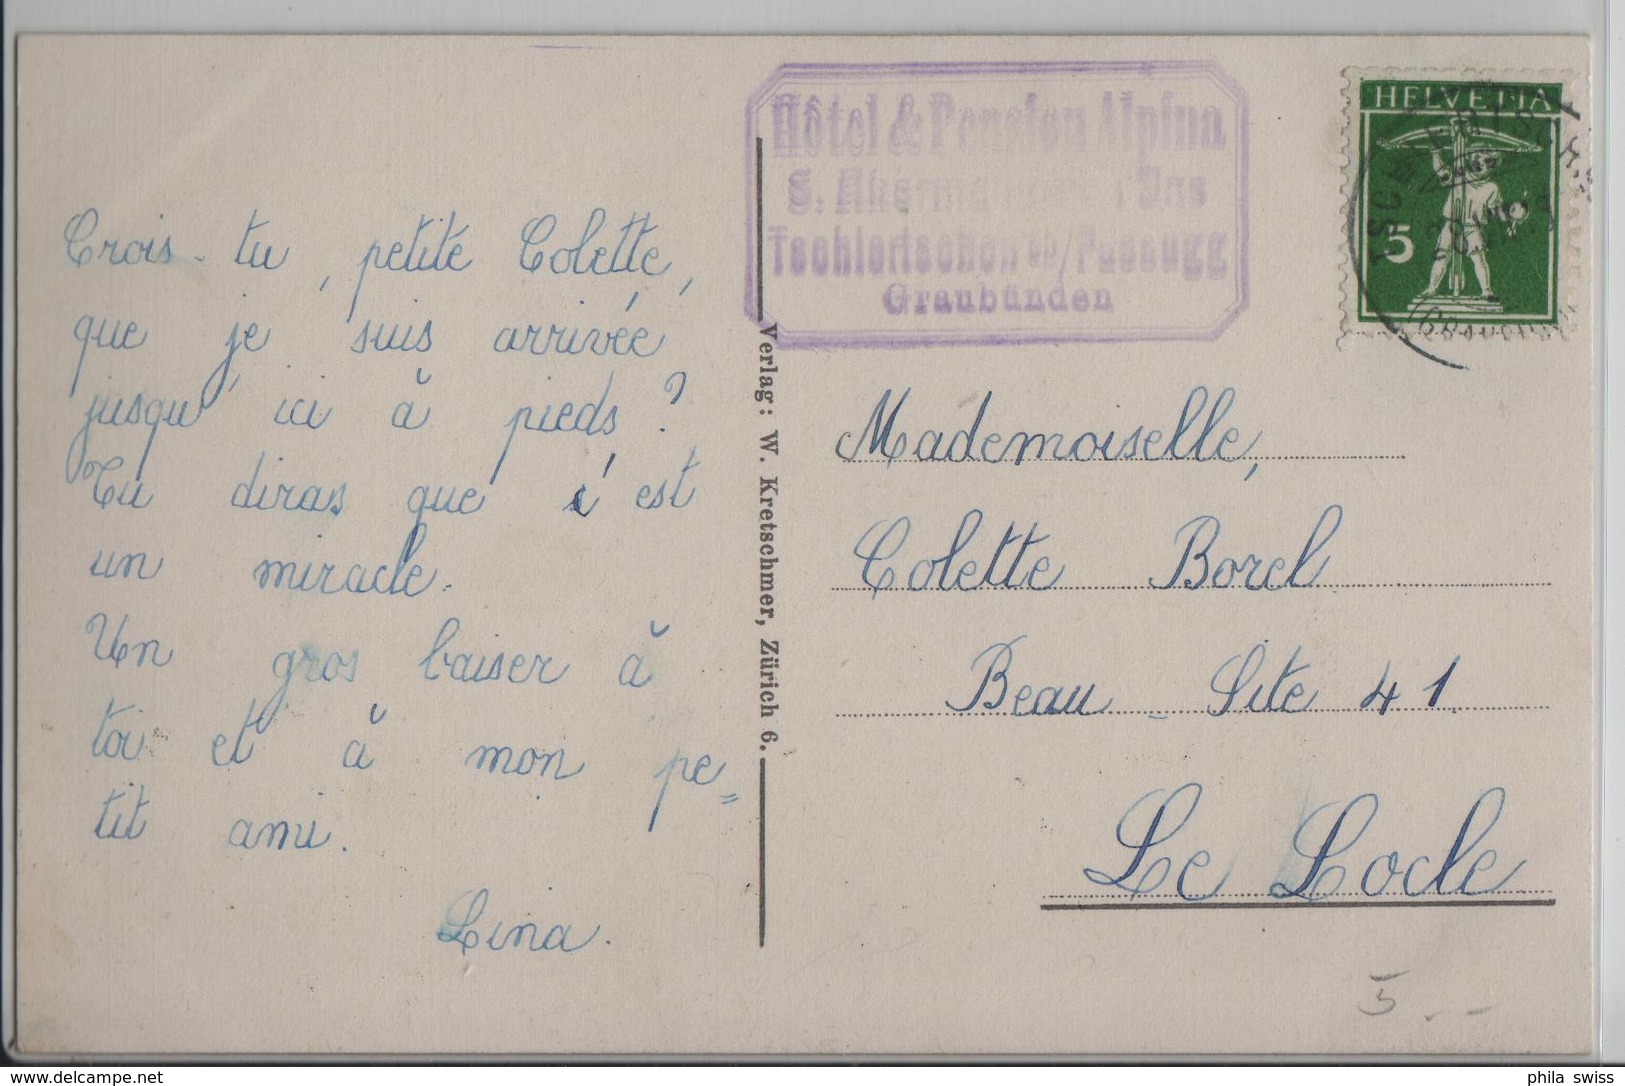 Crois-tu, petite Colette,
que je suis arrivée
jusqu'ici à pieds?
Tu diras que c'est
un miracle.
Un gros baiser à
toi et à mon pe=
tit ami.
Lina.
Verlag: W. Kretschmer, Zürich 6.
Hôtel & Pension Alpina
S.
Tschiertschen ob/Passugg
Graubünden
HELVETIA
5
Mademoiselle,
Colette Borel
Beau-Site 41.
Le Locle
5.--
phila swiss
delcampe.net